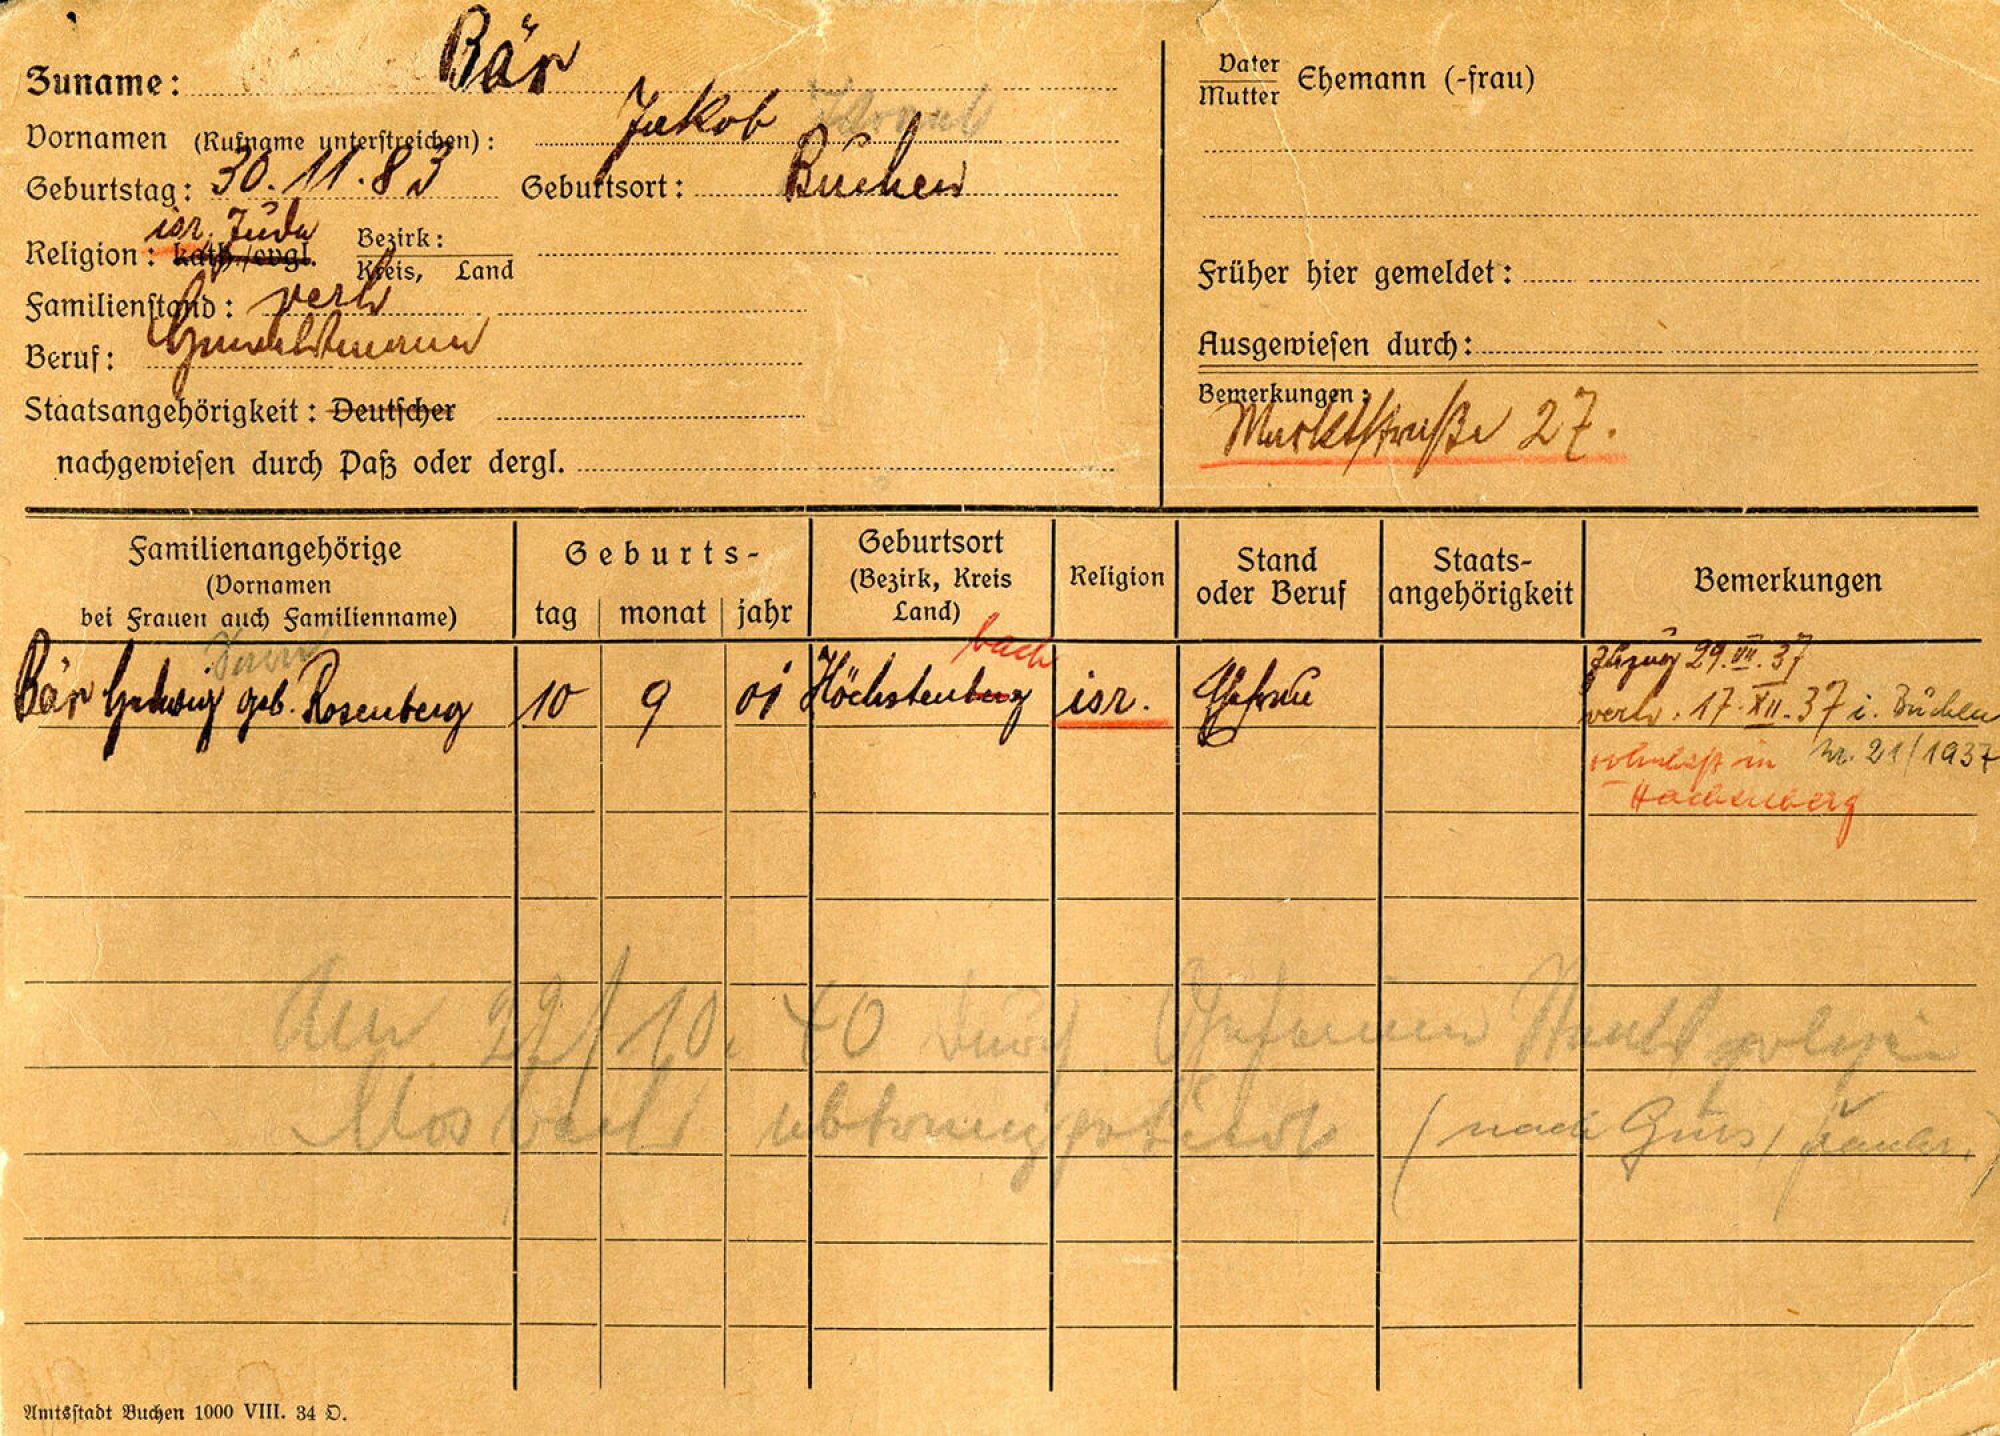 Zuname: Bär
Vornamen (Rufname unterstreichen): Jakob Israel
Geburtstag: 30.11.83 Geburtsort: Buchen
isr. Jude
Religion: kath./evgl. Bezirk: Kreis, Land
Familienstand: verh
Beruf:
Staatsangehörigkeit: Deutscher
nachgewiesen durch Paß oder dergl.
Vater
Mutter Ehemann (-frau)
Früher hier gemeldet:
Ausgewiesen durch:
Bemerkungen:
Marktstraße 27.
Familienangehörige
(Vornamen
bei Frauen auch Familienname)
Geburts-
tag monat jahr
Geburtsort
(Bezirk, Kreis
Land)
Religion
Stand
oder Beruf
Staats-
angehörigkeit
Bemerkungen
Sara
bach
Bär Hedwig geb. Rosenberg 10 9 01 Höchstenberg isr. Ehefrau
Zuzug 29.VII.37
verh. 17.XII.37 i. Buchen
Nr. 21/1937
wohnhaft in
Hachenberg
Am 22/10. 40 durch Geheime Staatspolizei
Mosbach abtransportiert (nach Gurs, Frankr.)
Amtsstadt Buchen 1000 VIII. 34 D.